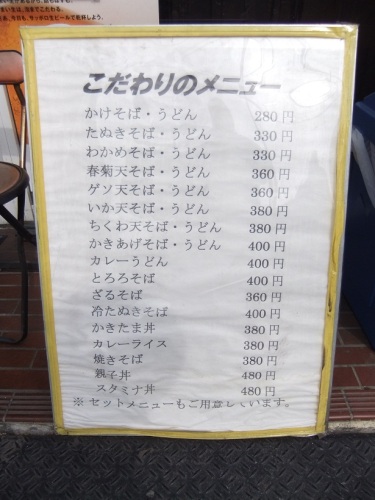 こだわりのメニュー
かけそば・うどん 280円
たぬきそば・うどん 330円
わかめそば・うどん 330円
春菊天そば・うどん 360円
ゲソ天そば・うどん 360円
いか天そば・うどん 380円
ちくわ天そば・うどん 380円
かきあげそば・うどん 400円
カレーうどん 400円
とろろそば 400円
ざるそば 360円
冷たぬきそば 400円
かきたま丼 380円
カレーライス 380円
焼きそば 380円
親子丼 480円
スタミナ丼 480円
※ セットメニューもご用意しています。